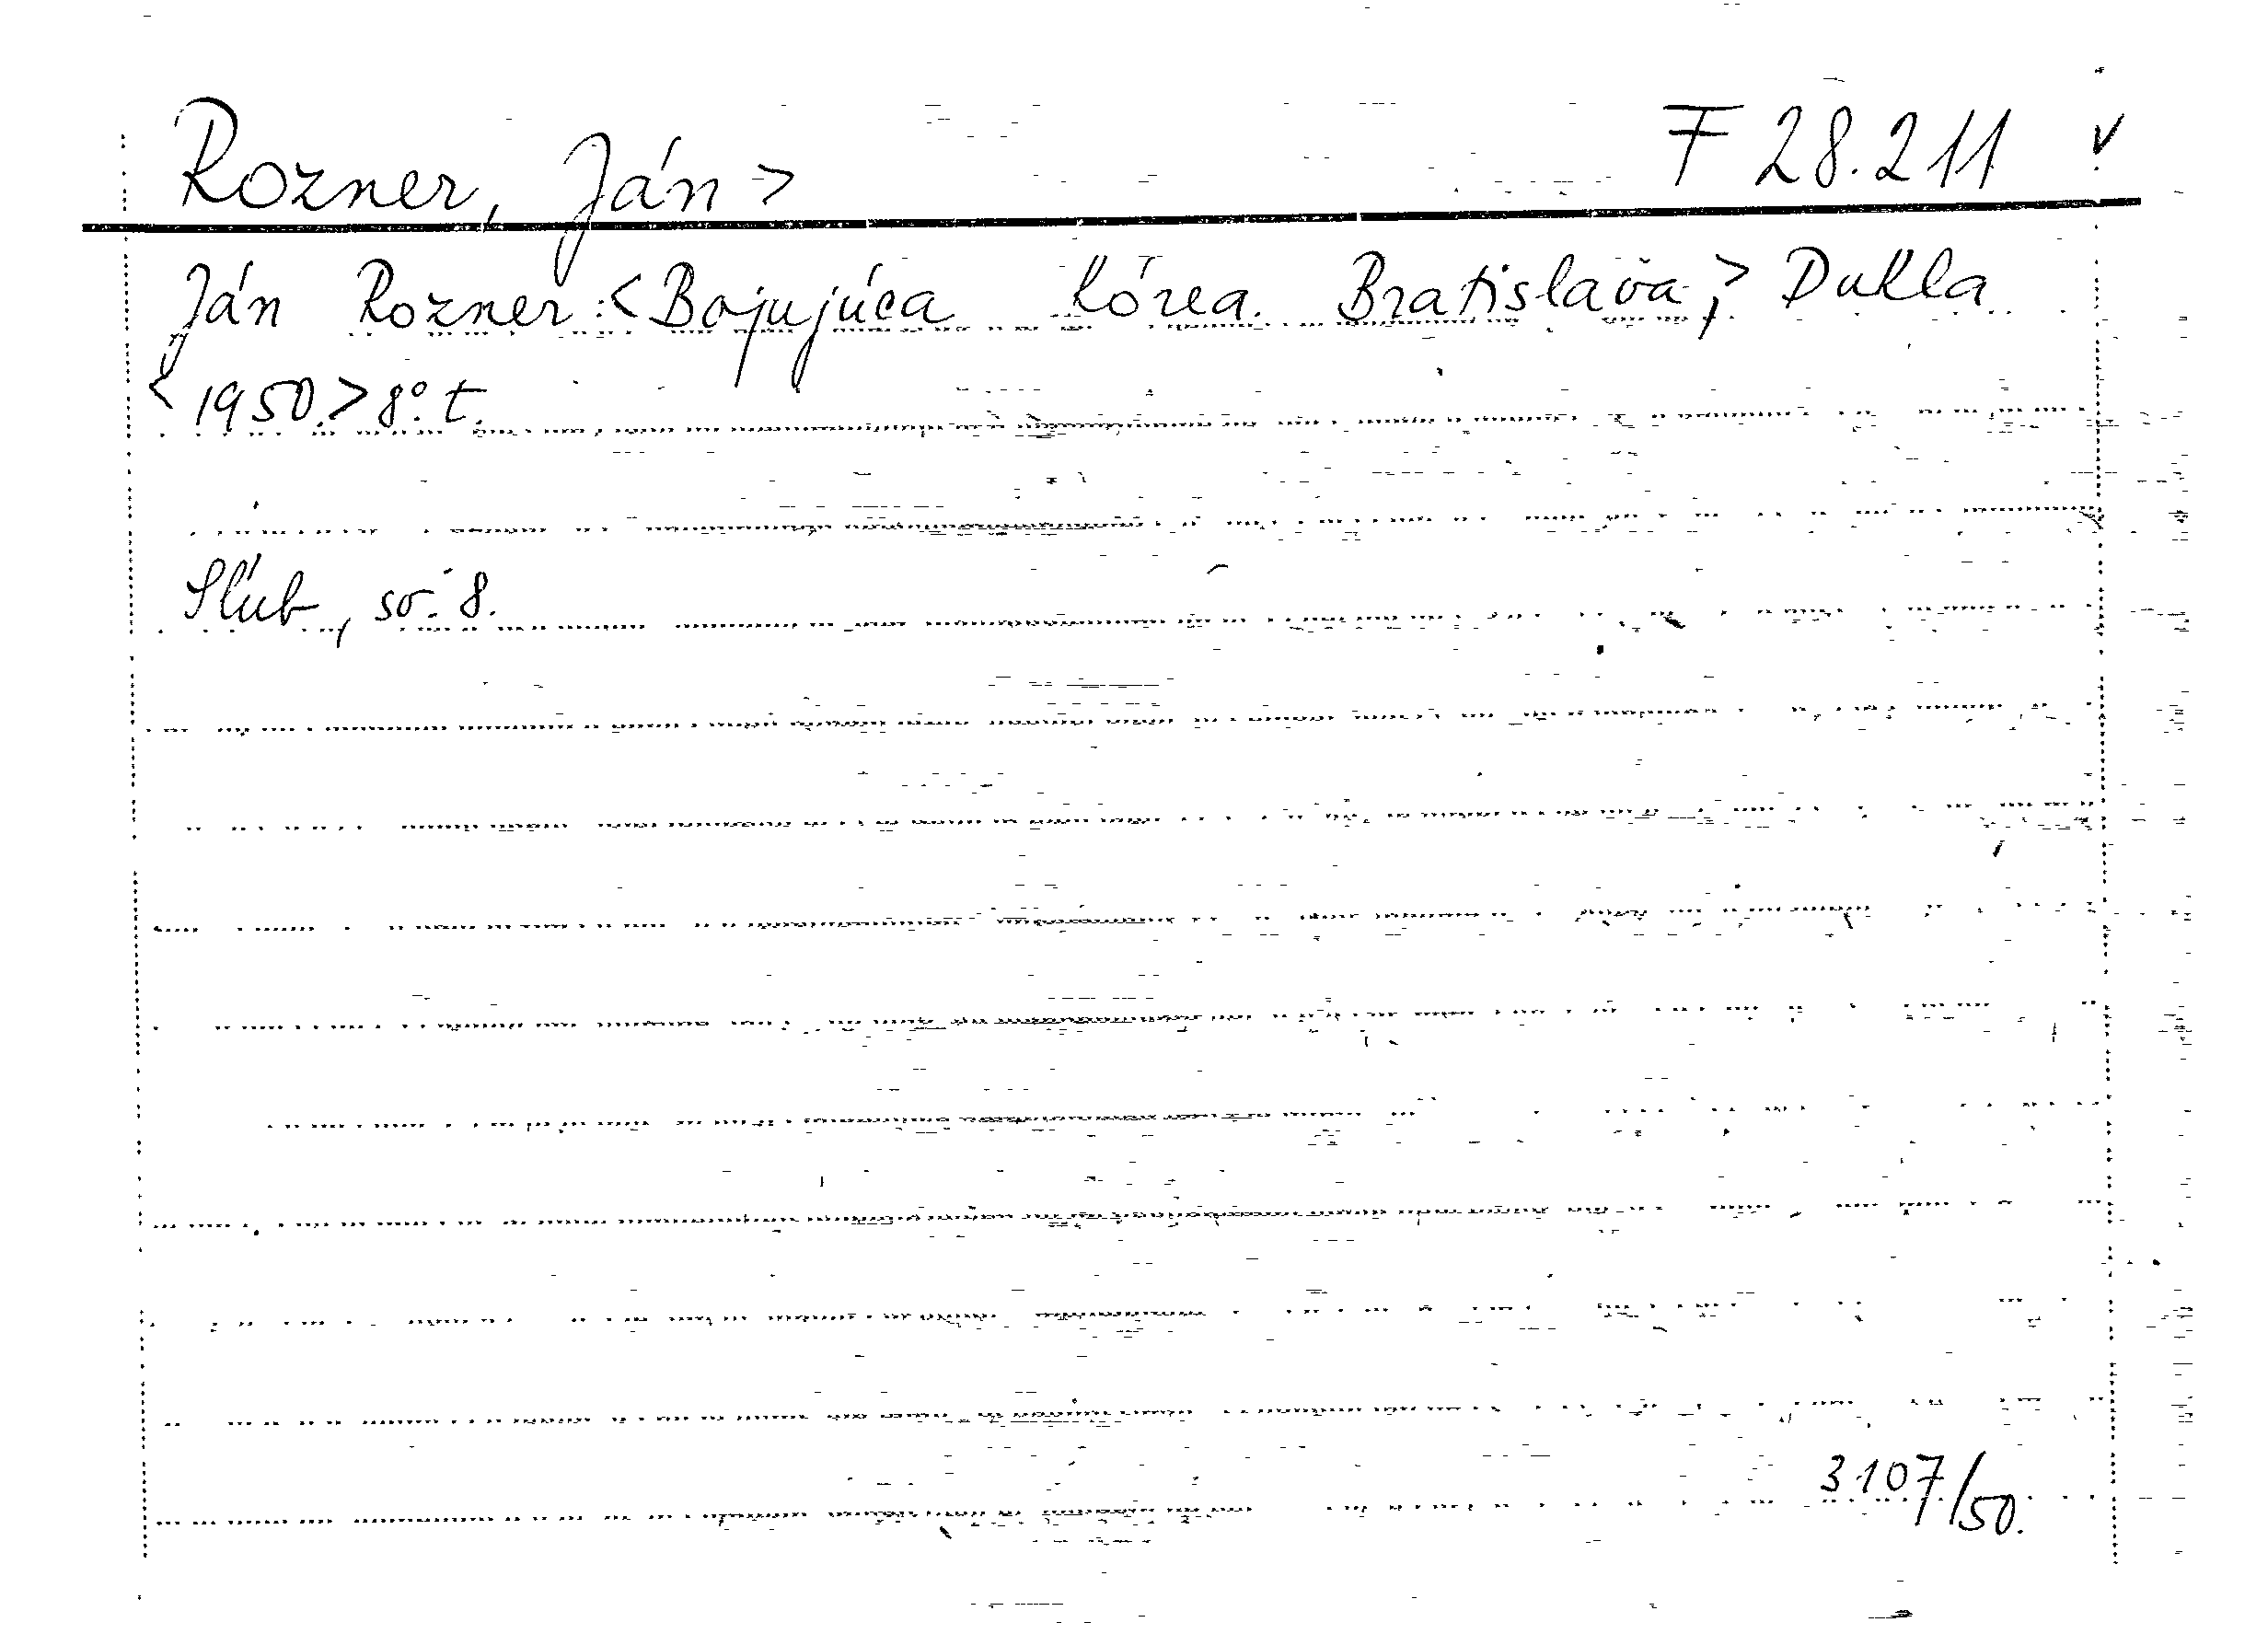 Rozner, Ján > F 28.211 v
Ján Rozner: <Bojujúca Kórea. Bratislava,> Dukla
<1950.> 8°. t.
Sľub, sv. 8.
3107/50.